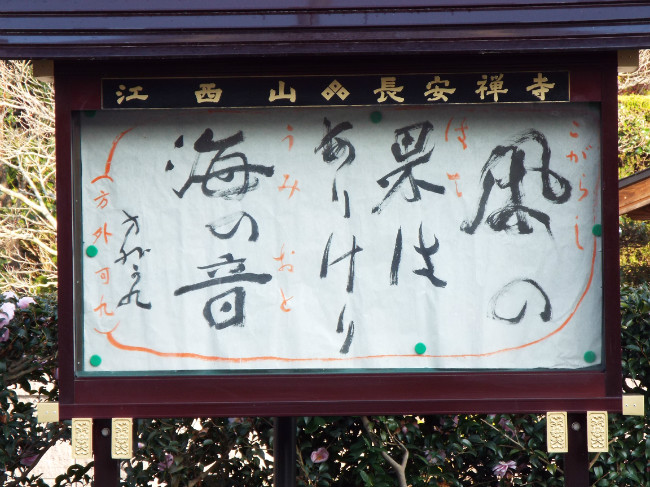 江西山 長安禅寺
こがらし
凩の
はて
果は
ありけり
うみ おと
海の音
方外可九
(方外可九)